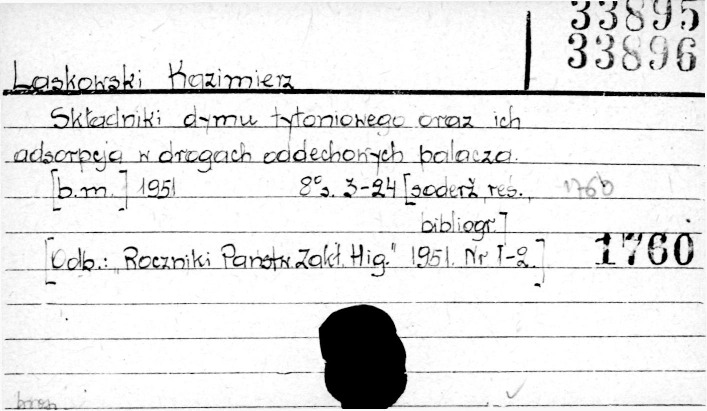 33895
33896
Laskowski Kazimierz
Składniki dymu tytoniowego oraz ich
adsorpcja w drogach oddechowych palacza.
[b.m.] 1951 8° s. 3-24 [soderž., res., 1760
bibliogr.]
[Odb.: "Roczniki Państw. Zakł. Hig." 1951. Nr 1-2.] 1760